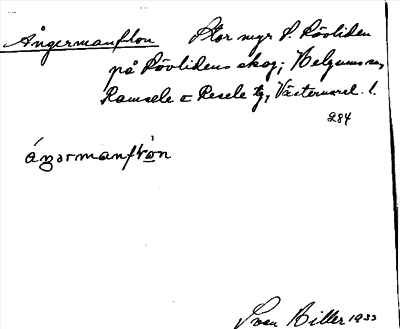 Ångermanflon Stor myr S. Rövliden
på Rövlidens skog; Helgums sn,
Ramsele o Resele tg, Västernorrl. l.
284
áŋərmanflòn
Sven Hiller 1933